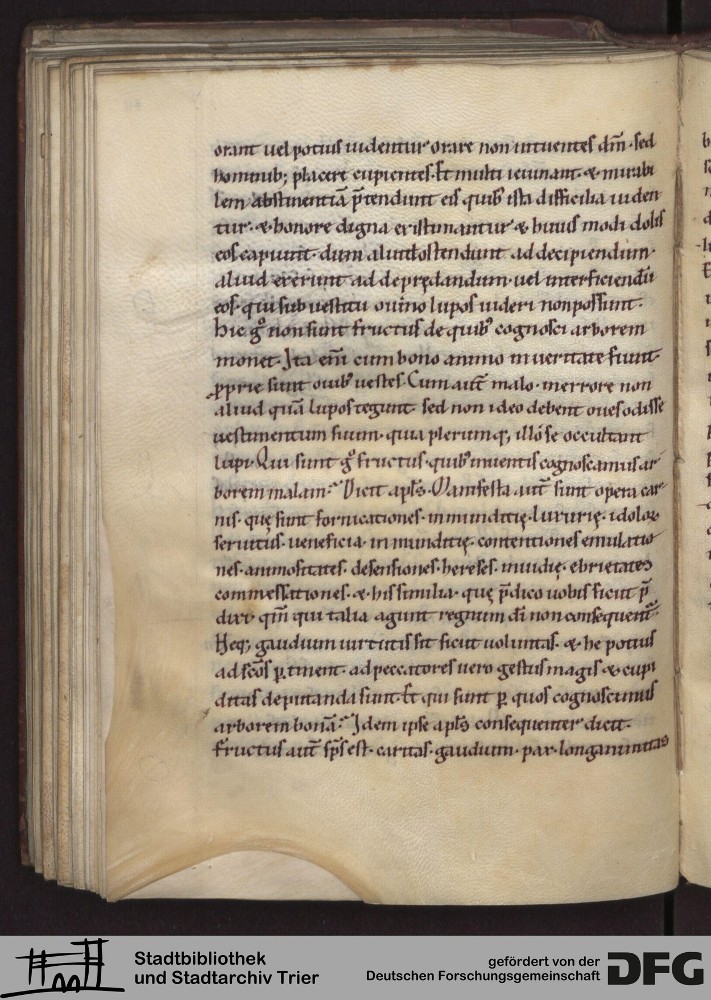 orant uel potius uidentur orare non intuentes dm̄ · sed
hominib; placere cupientes · Et multi ieiunant · & mirabi
lem abstinentiā p̄tendunt eis quib' ista difficilia uiden
tur · & honore digna existimantur & huius modi dolis
eos capiunt · dum aliud ostendunt ad decipiendum ·
aliud exerunt ad depredandum · uel interficiendū
eos · qui sub uestitu ouino lupos uideri non possunt ·
hic gͦ non sunt fructus de quib' cognosci arborem
monet · Ita eni͂ cum bono animo in ueritate fiunt ·
ꝓprie sunt ouib' uestes · Cum aut͂ malo · in errore non
aliud quā lupos tegunt · sed non ideo debent oues odisse
uestimentum suum · quia plerumq; illo se occultant
lupi · Qui sunt gͦ fructus · quib' inuentis cognoscamus ar
borem malam · Dicit apl̄s · Manifesta aut͂ sunt opera car
nis · quę sunt fornicationes · inmunditię · luxurię · idoloꝝ
seruitus · ueneficia · inmunditię · contentiones emulatio
nes · animositates · hereses · inuidię · ebrietates
commessationes · & his similia · quę p̄dico uobis sicut p̄
dixi · qm̄ qui talia agunt regnum dī non consequent̄ ·
Heq; gaudium uirtutis sit sicut uoluntas · & he potius
ad scōs ꝑtinent · ad peccatores uero gestus magis & cupi
ditas deputanda sunt · Et qui sunt ꝑ quos cognoscimus
arborem bonā · Idem ipse apl̄s consequenter dicit ·
fructus aut͂ sp̄s est · caritas · gaudium · pax · longanimitas
Stadtbibliothek
und Stadtarchiv Trier
gefördert von der
Deutschen Forschungsgemeinschaft
DFG